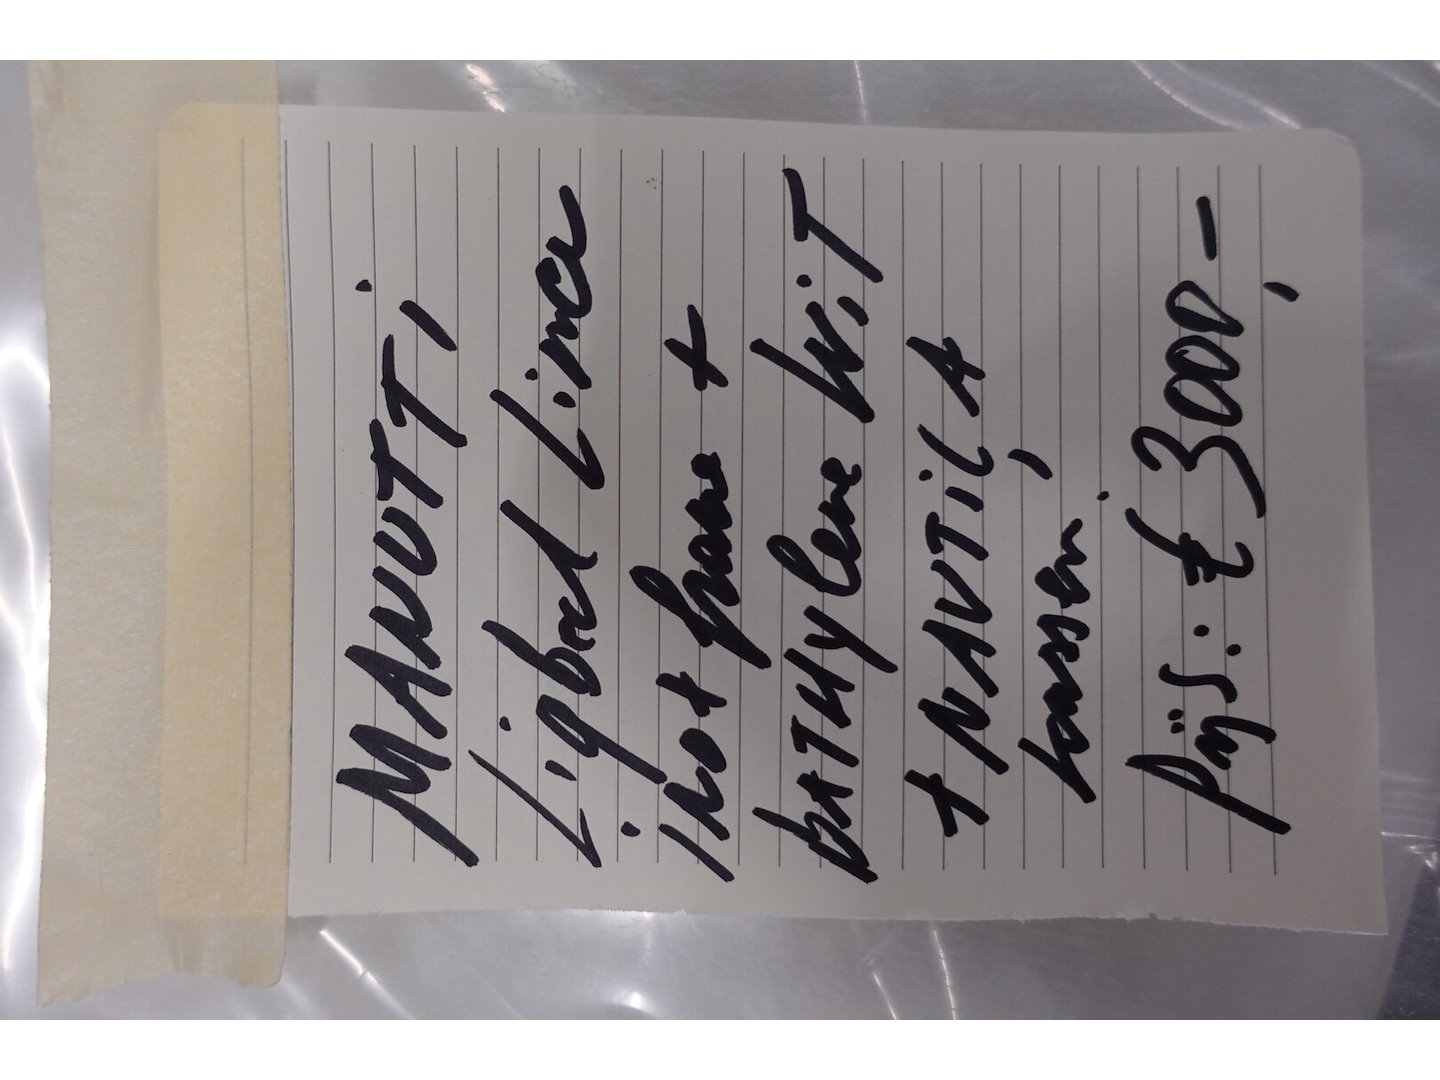 MANUTTI
Ligbed Linea
inox frame +
batyline wit
+ NAUTICA
kussen.
Prijs: € 300,-